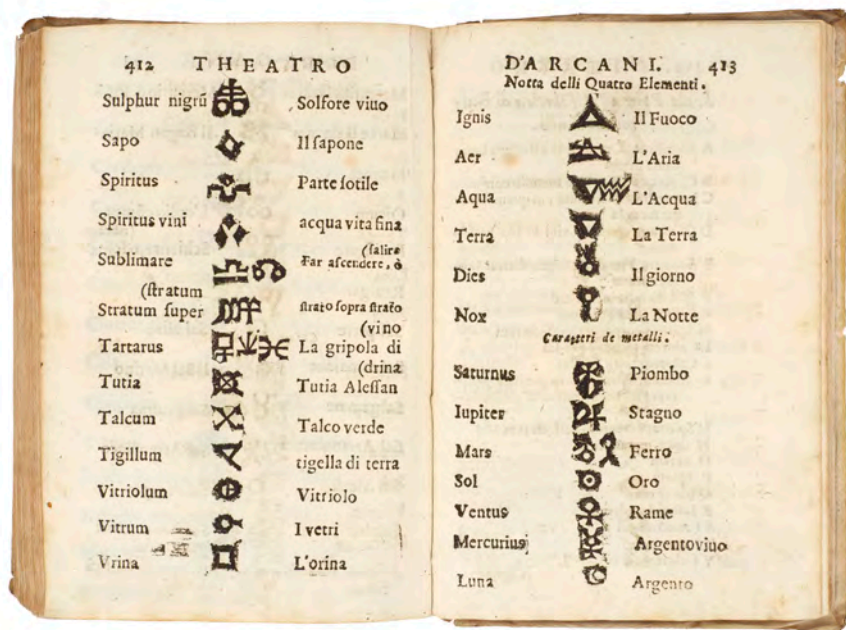 412 THEATRO
Sulphur nigrũ Solfore viuo
Sapo Il ſapone
Spiritus Parte ſotile
Spiritus vini acqua vita fina
(ſalire
Sublimare Far aſcendere, ò
(ſtratum
Stratum ſuper ſtrato ſopra ſtrato
(vino
Tartarus La gripola di
(drina
Tutia Tutia Aleſſan
Talcum Talco verde
Tigillum tigella di terra
Vitriolum Vitriolo
Vitrum I vetri
Vrina L'orina
D'ARCANI. 413
Notta delli Quatro Elementi.
Ignis Il Fuoco
Aer L'Aria
Aqua L'Acqua
Terra La Terra
Dies Il giorno
Nox La Notte
Caratteri de metalli.
Saturnus Piombo
Iupiter Stagno
Mars Ferro
Sol Oro
Ventus Rame
Mercurius Argentoviuo
Luna Argento